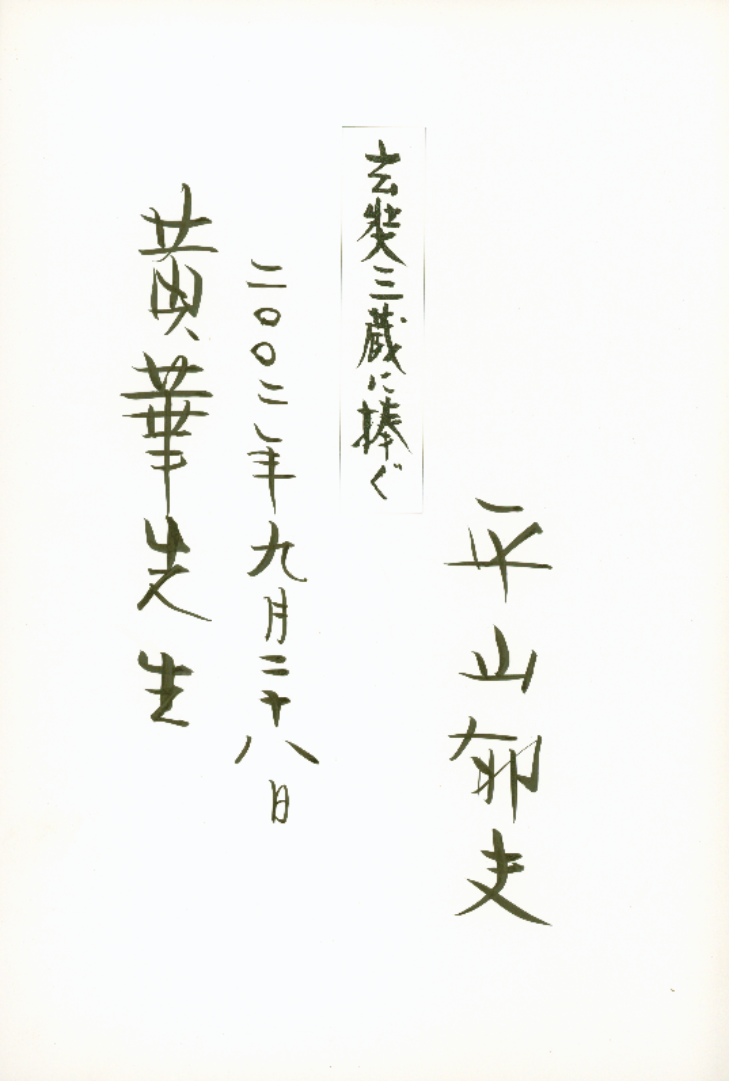 平山郁夫
玄奘三蔵に捧ぐ
二〇〇二年九月二十八日
黄華先生